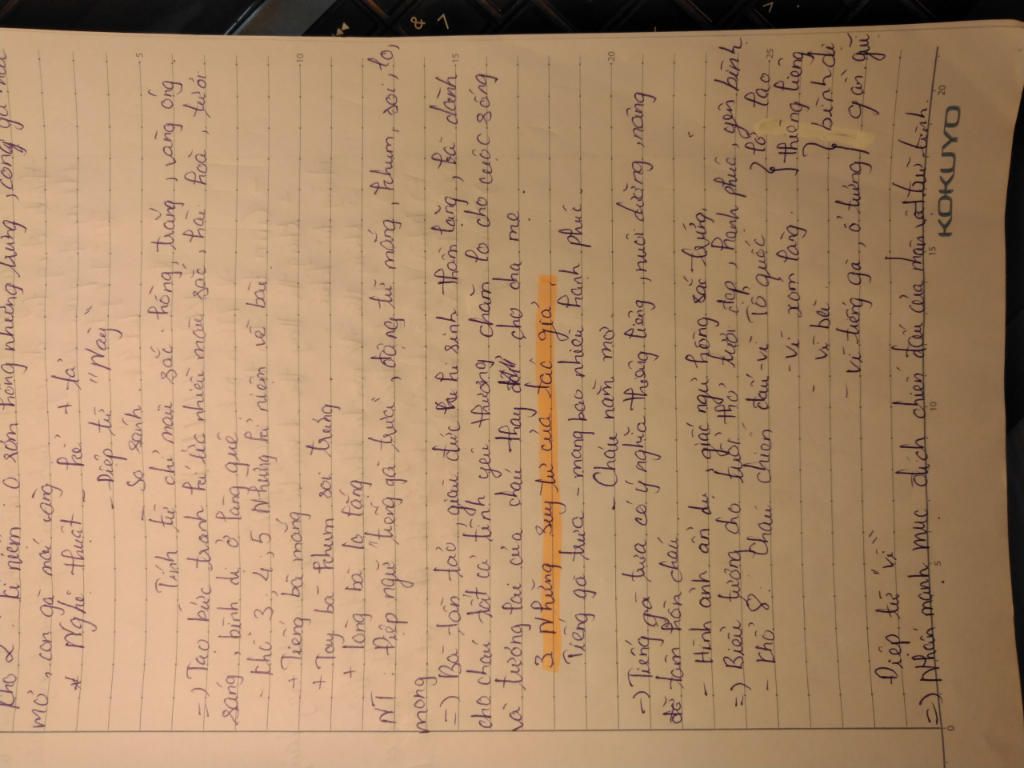 Khổ 2: kỉ niệm: ổ rơm hồng những trứng, con gà mái
mơ, con gà mái vàng
* Nghệ thuật - kể + tả
- Điệp từ "Này"
- So sánh
Tính từ chỉ màu sắc: hồng, trắng, vàng óng
=) Tạo bức tranh hài hoà nhiều màu sắc, hài hoà, tươi
sáng, bình dị ở làng quê
- Khổ 3, 4, 5 Những kỉ niệm về bà
+ Tiếng bà mắng
+ Tay bà khum soi trứng
+ lòng bà lo lắng
NT: Điệp ngữ "tiếng gà trưa", động từ mắng, khum, soi, lo,
mong
=) Bà tần tảo, giàu đức hi sinh thầm lặng, bà dành
cho cháu tất cả tình yêu thương chăm lo cho cuộc sống
và tương lai của cháu thay cho cha mẹ
3. Những suy tư của tác giả
Tiếng gà trưa - mang bao nhiêu hạnh phúc
- Cháu nằm mơ
-) Tiếng gà trưa có ý nghĩa thiêng liêng, nuôi dưỡng, nâng
đỡ tâm hồn cháu
- Hình ảnh ẩn dụ: giấc ngủ hồng sắc trứng
=) Biểu tượng cho tuổi thơ tươi đẹp, hạnh phúc, yên bình
- Khổ 8: Cháu chiến đấu - vì Tổ quốc } to tao
- vì xóm làng } thiêng liêng
- vì bà } bình dị
- vì tiếng gà, ổ trứng } gần gũi
Điệp từ "vì"
=) Nhấn mạnh mục đích chiến đấu của nhân vật trữ tình.
5
10
15
20
25
0
5
10
15
20
KOKUYO
& 7